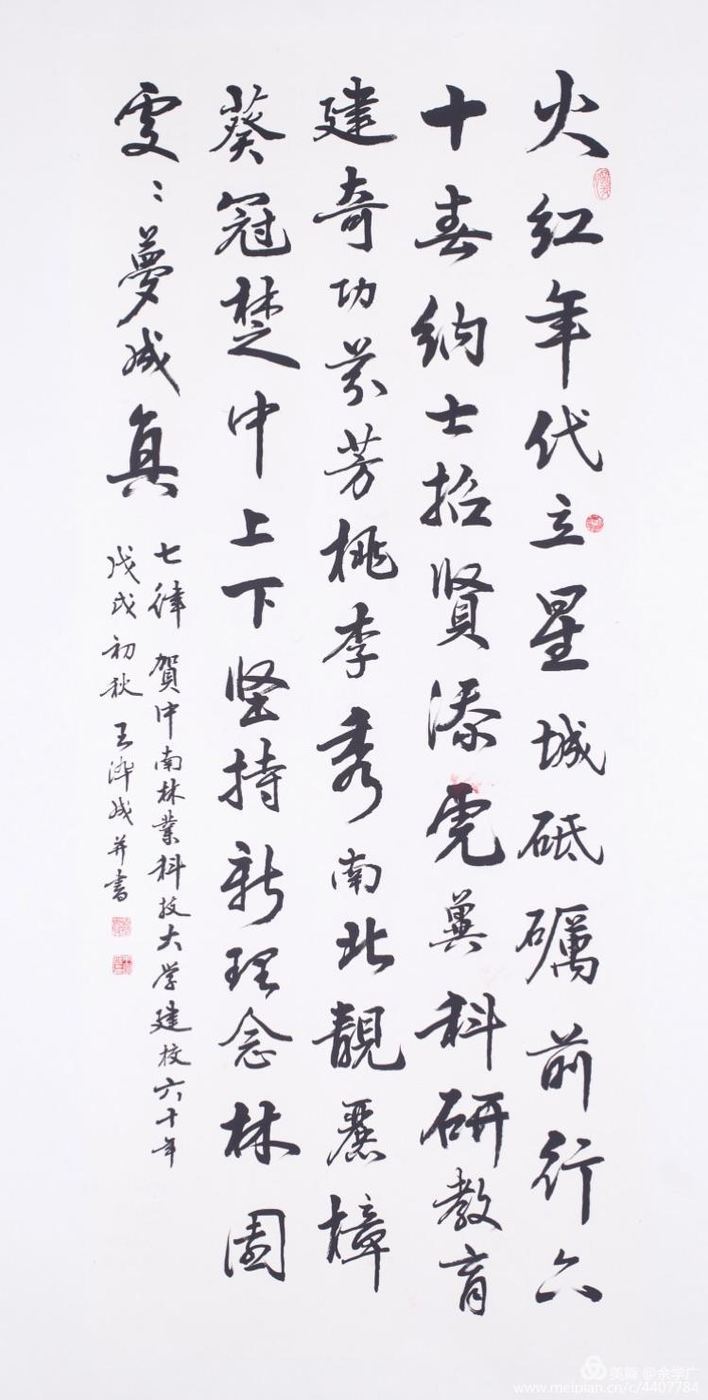 火红年代立星城砥砺前行六
十春纳士招贤添虎翼科研教育
建奇功芬芳桃李秀南北靓丽樟
葵冠楚中上下坚持新理念林园
雯〻夢成真
七律 賀中南林業科技大学建校六十年
戊戌初秋 王 成并書
美篇 @余学广
www.meipian.cn/c/4407784